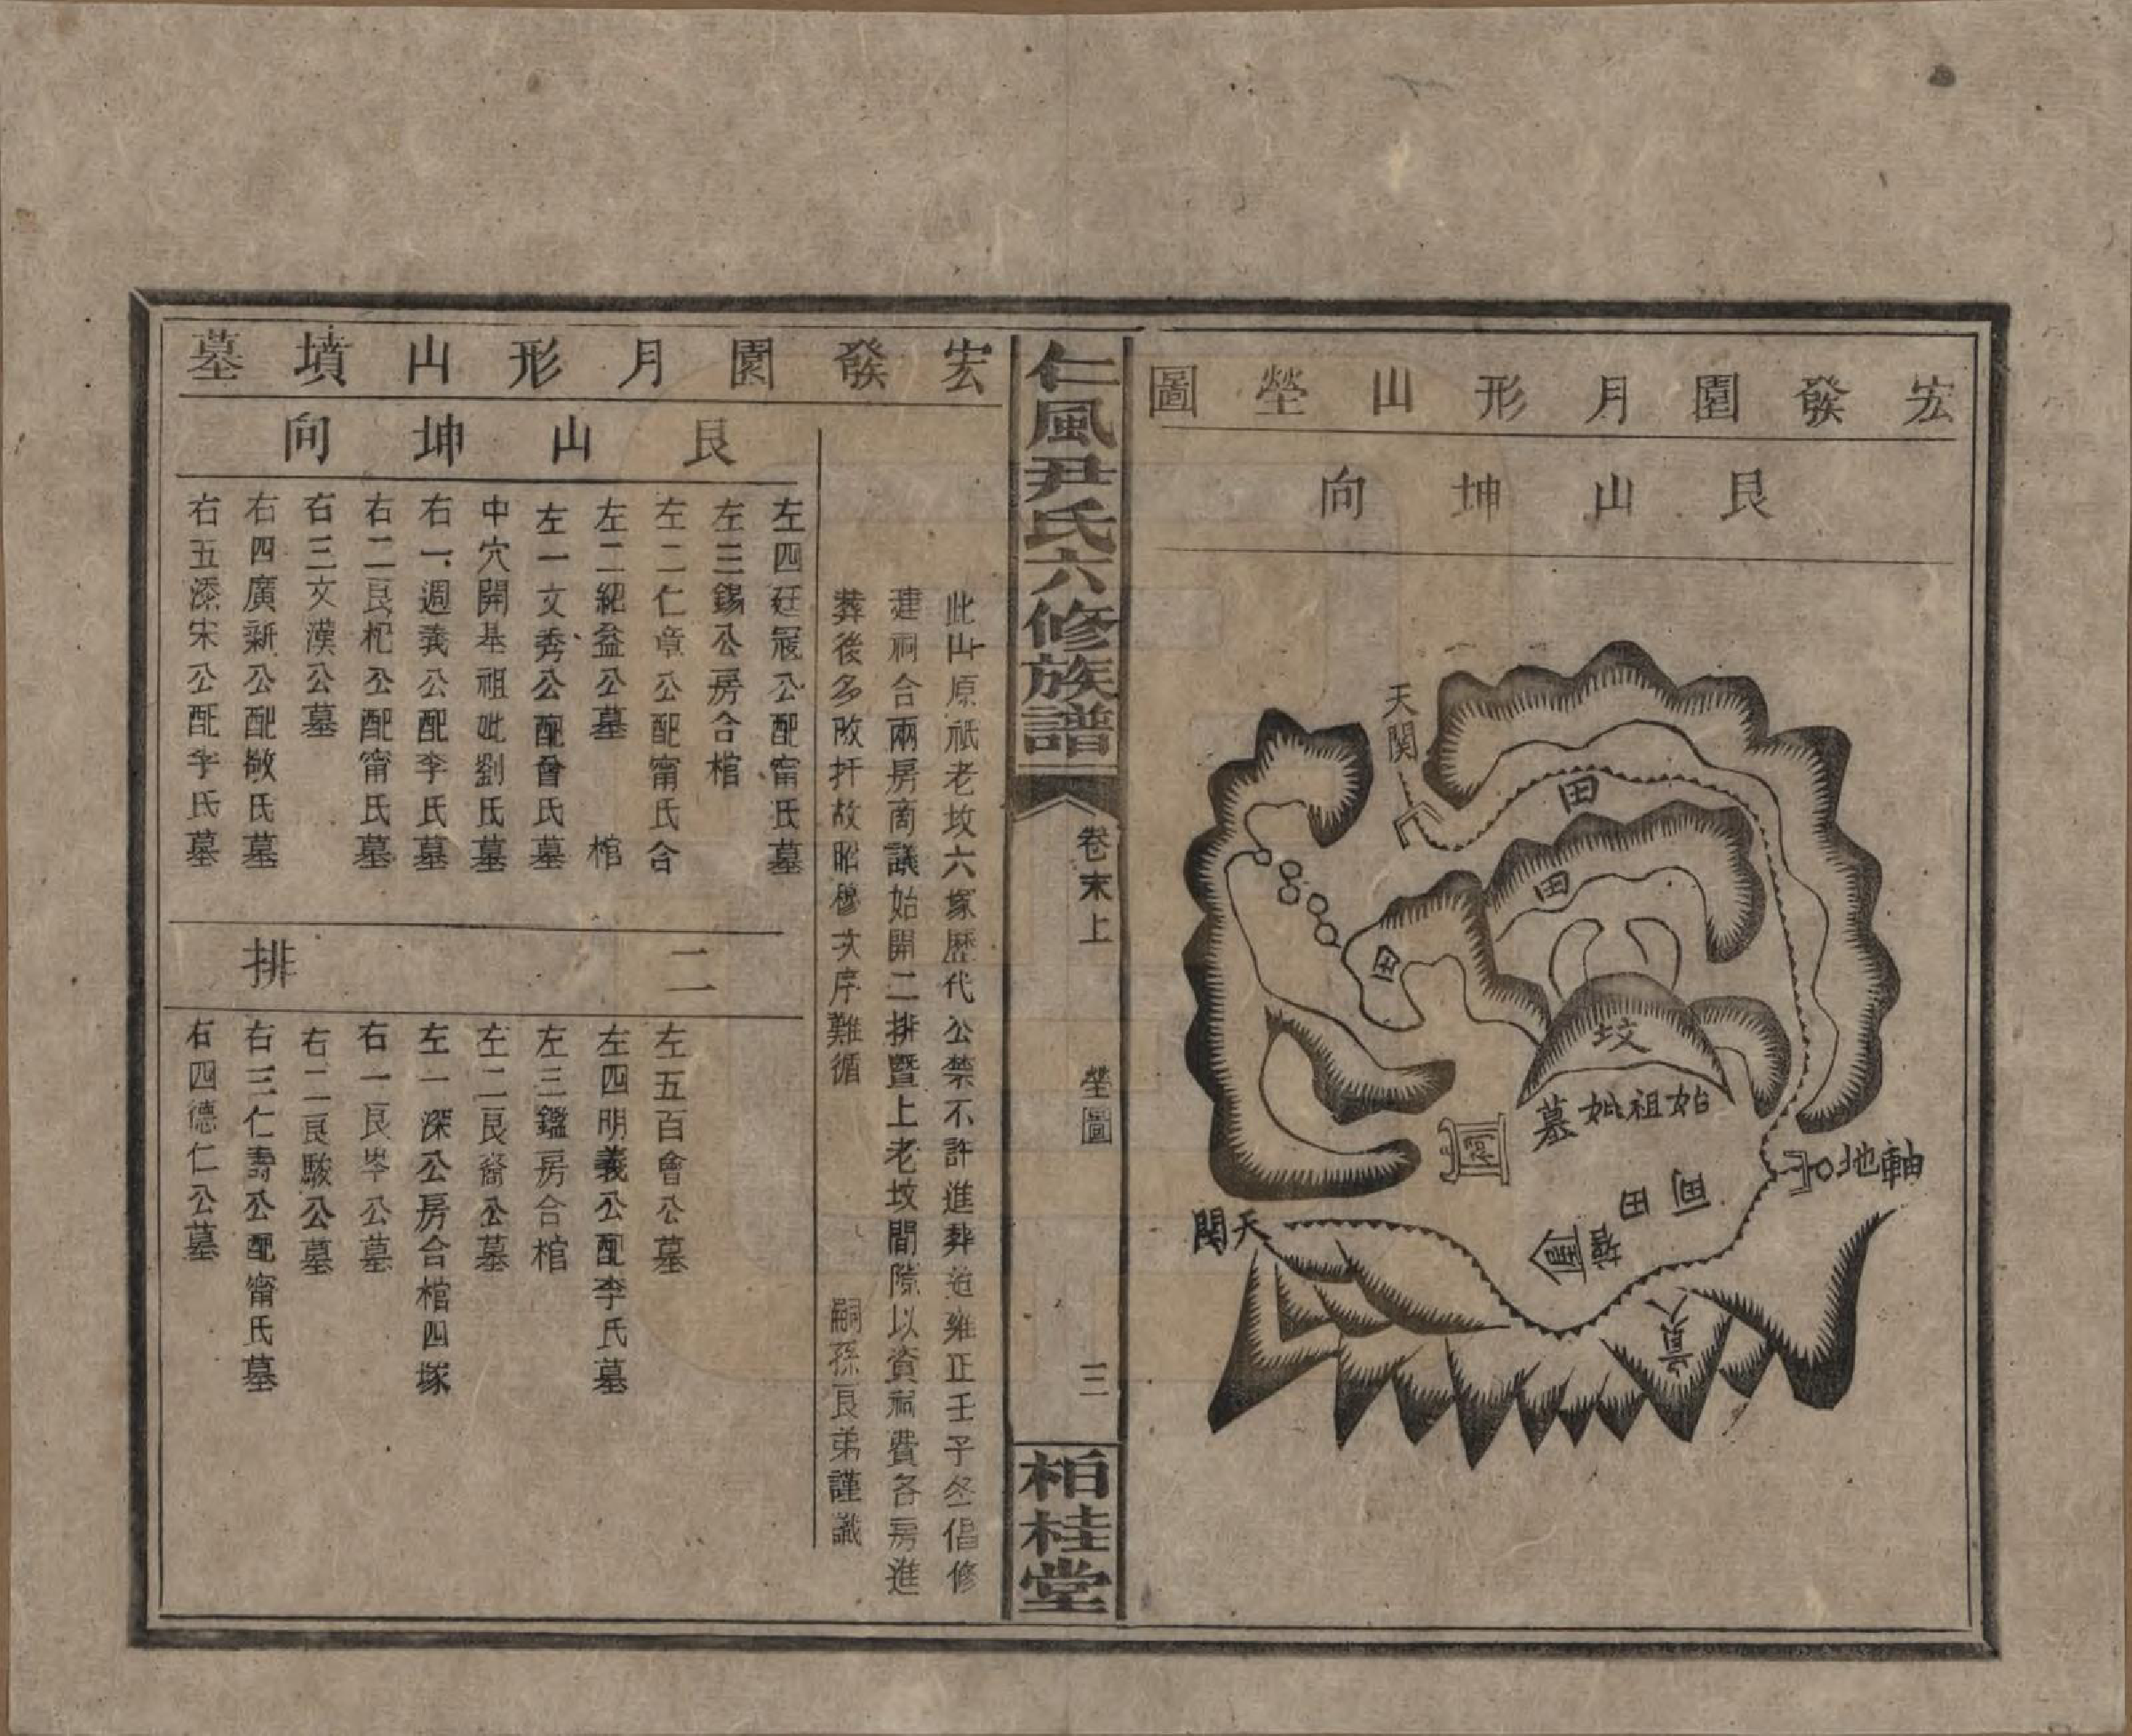 宏發園月形山塋圖
艮山坤向
天關
田
田
田
坟
始祖妣墓
地軸
田
天關
貴人
仁風尹氏六修族譜
卷末上
塋圖
三
柏桂堂
宏發園月形山墳墓
此山原祇老坟六冢歷代公禁不許進葬迨雍正壬子冬倡修
建祠合兩房商議始開二排暨上老坟間隙以資祠費各房進
葬後多敗扦故昭穆次序難循
嗣孫良弟謹識
艮山坤向
左四廷寇公配甯氏墓
左三錫公房合棺
左二仁章公配甯氏合
左二紹益公墓 棺
左一文秀公配曾氏墓
中穴開基祖妣劉氏墓
右一週義公配李氏墓
右二良杞公配甯氏墓
右三文漢公墓
右四廣新公配敬氏墓
右五添宋公配李氏墓
二排
左五百會公墓
左四明義公配李氏墓
左三鑑房合棺
左二良裔公墓
左一深公房合棺四塚
右一良岑公墓
右二良駿公墓
右三仁壽公配甯氏墓
右四德仁公墓